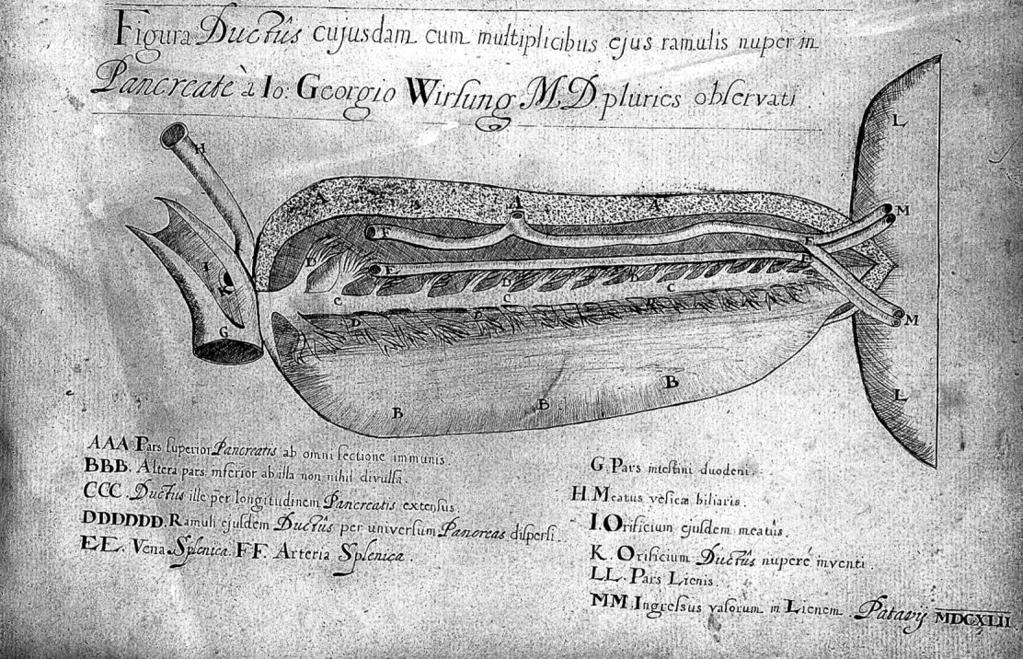 Figura Ductûs cujusdam cum multiplicibus ejus ramulis nuper in
Pancreate à Io: Georgio Wirsung M.D pluries observati
H
L
I
K
G
A
A
A
F
F
M
D
E
E
D
K
C
C
C
D
D
M
B
B
B
L
AAA Pars superior Pancreatis ab omni sectione immunis.
BBB. Altera pars inferior ab illa non nihil divulsa.
CCC. Ductus ille per longitudinem Pancreatis extensus.
DDDDDD. Ramuli ejusdem Ductûs per universum Pancreas dispersi.
EE. Vena Splenica. FF. Arteria Splenica.
G. Pars intestini duodeni.
H. Meatus vesicæ biliaris.
I. Orificium ejusdem meatûs.
K. Orificium Ductûs nuperé inventi.
LL. Pars Lienis.
MM. Ingressus vasorum in Lienem. Patavij MDCXLII